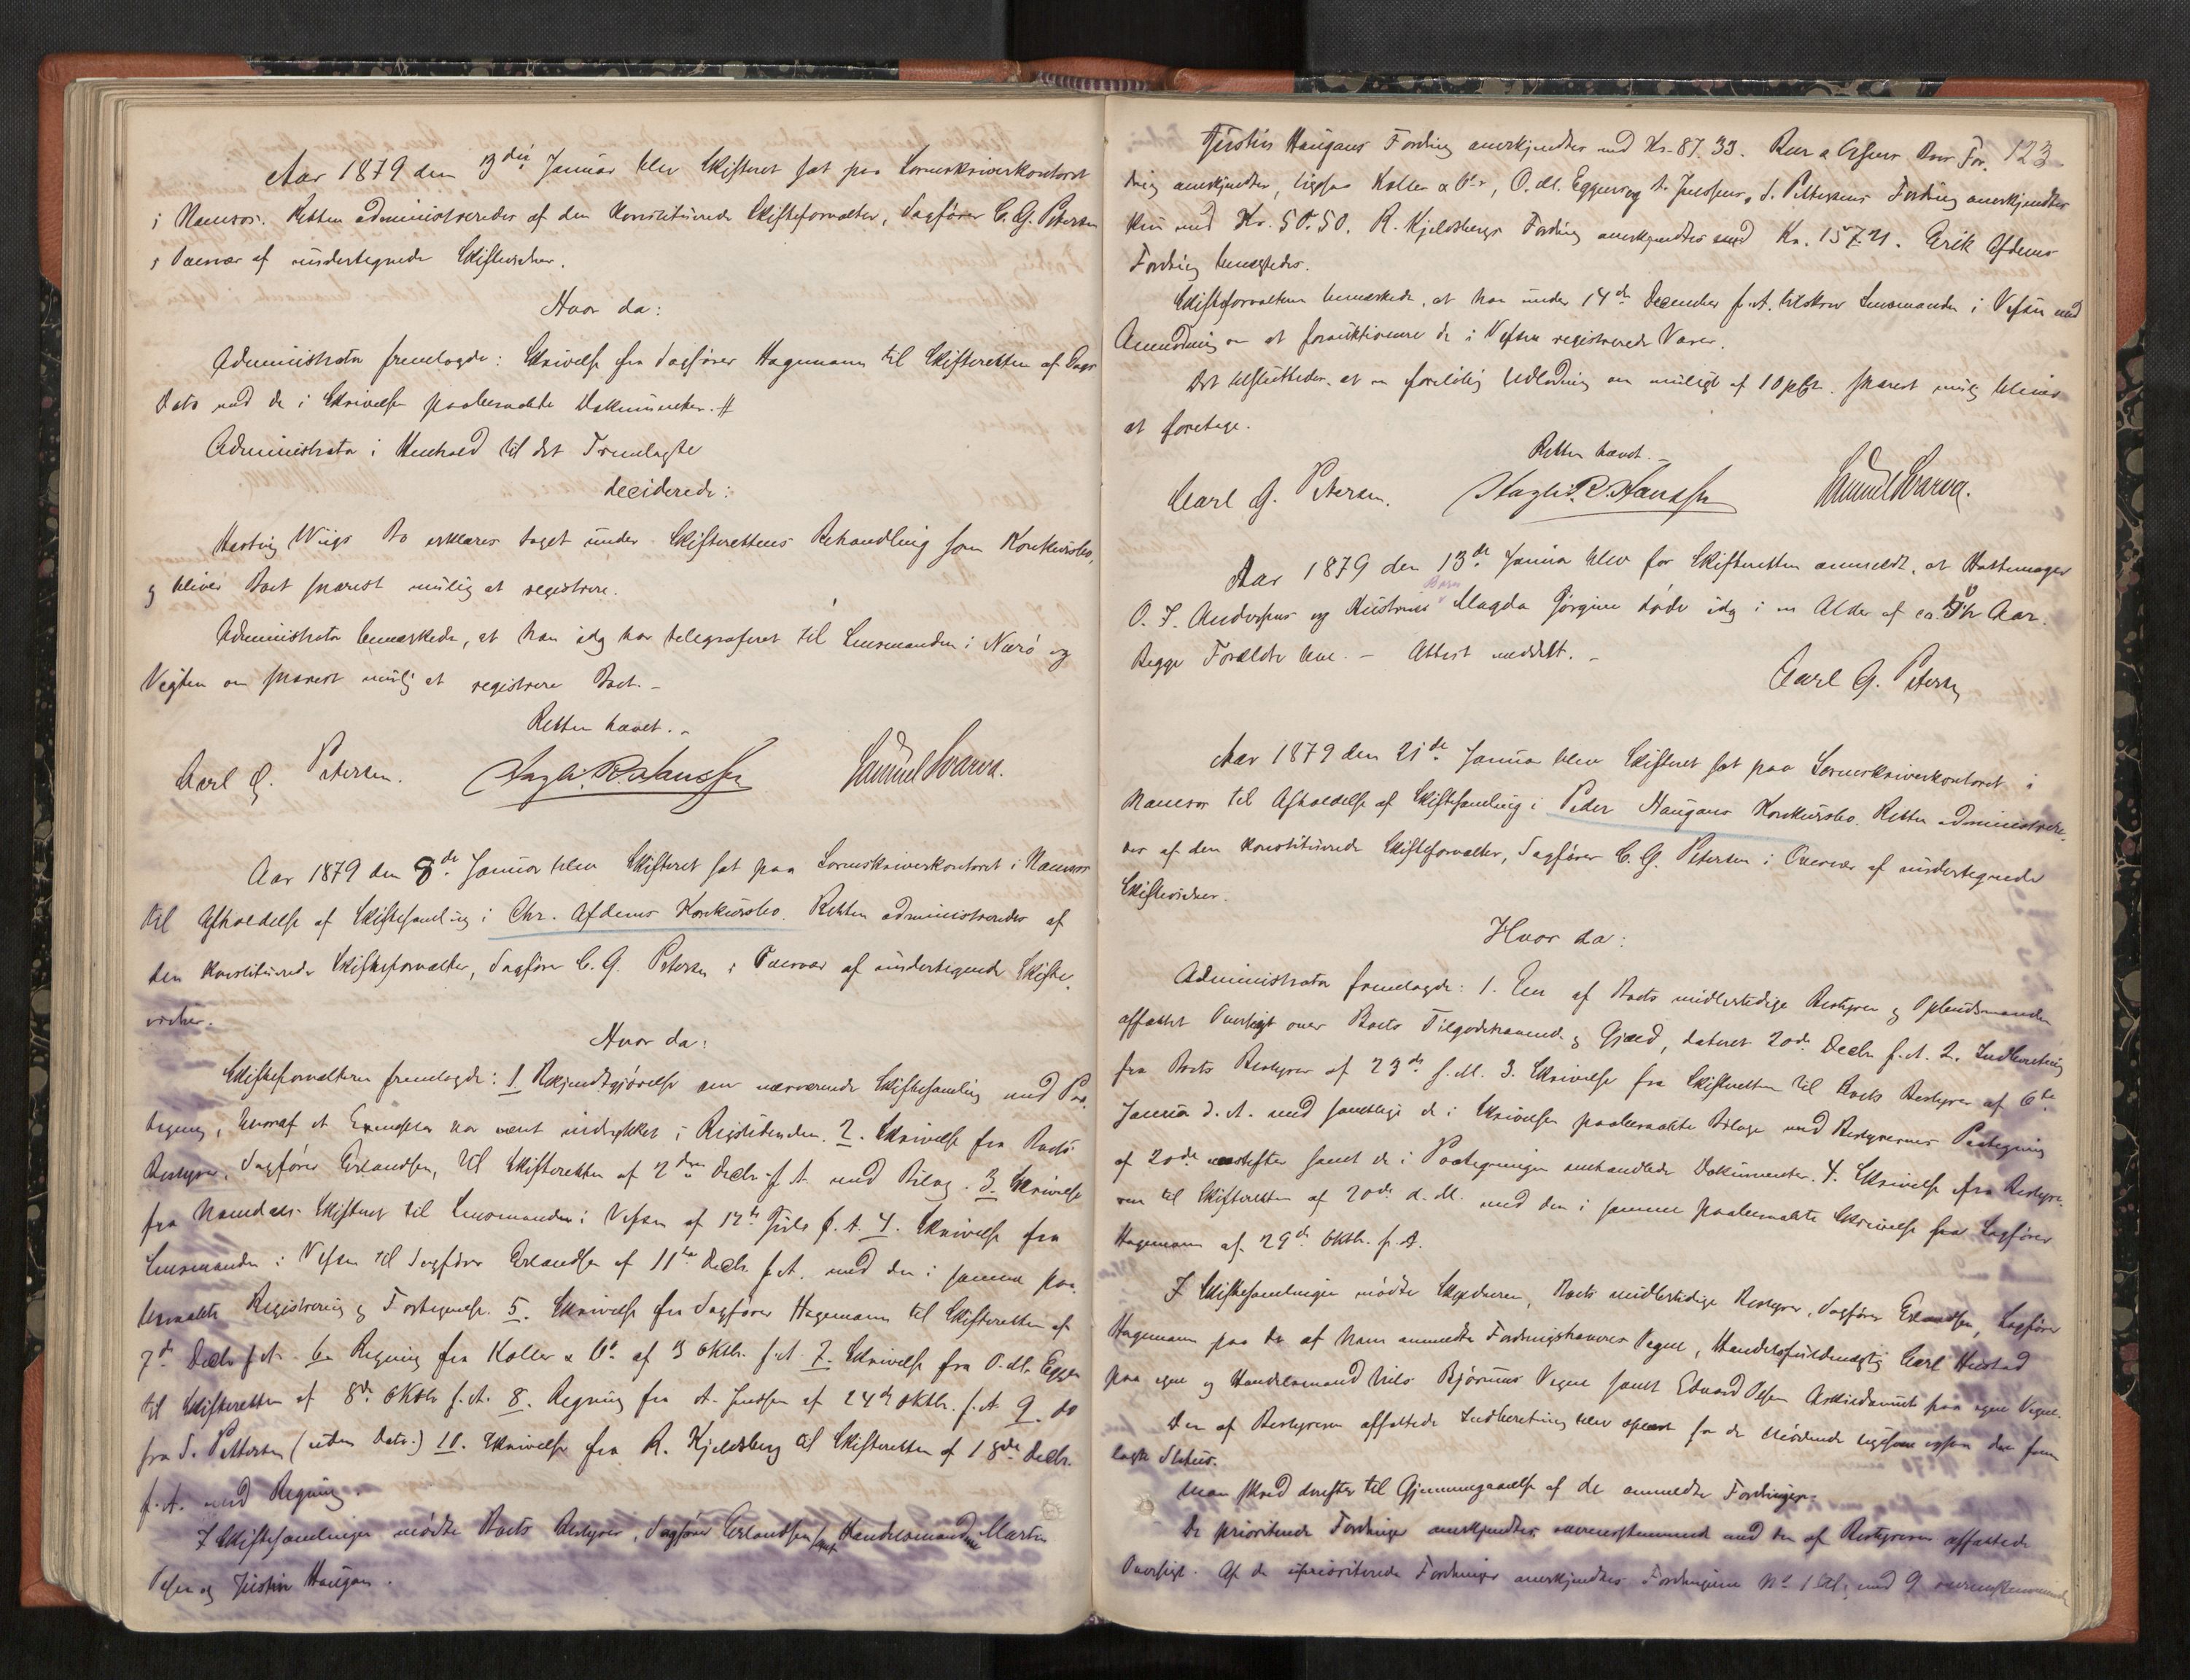 Aar 1879 den 3die Januar blev Skifteret sat paa Sorenskriverkontoret
i Namsos. Retten administreredes af den konstituerede Skifteforvalter, Sagfører C. G. Petersen
i Overvær af undertegnede Skiftevidner.
Hvor da:
Administrator fremlagde: Skrivelse fra Sagfører Hagemann til Skifteretten af Dags
Dato med de i Skrivelsen paaberaabte Dokumenter. #
Administrator i Henhold til det Fremlagte
deciderede:
Hartvig Wiigs Bo erklæres taget under Skifterettens Behandling som Konkursbo,
og bliver Boet snarest mulig at registrere.
Administrator bemærkede, at han idag har telegraferet til Lensmanden i Nærø og
Vegten om snarest mulig at registrere Boet. -
Retten hævet. -
Carl G. Petersen. R. Hanssen Samuel Svarva.
Aar 1879 den 8de Januar blev Skifteret sat paa Sorenskriverkontoret i Namsos
til Afholdelse af Skiftesamling i Chr. Afdems Konkursbo. Retten administreredes af
den konstituerede Skifteforvalter, Sagfører C. G. Petersen i Overvær af undertegnede Skifte-
vidner.
Hvor da:
Skifteforvalteren fremlagde: 1. Bekjendtgjørelse om nærværende Skiftesamling med Paa-
tegning, hvoraf et Exemplar har været indrykket i Rigstidenden. 2. Skrivelse fra Boets
Bestyrer, Sagfører Erlandsen, til Skifteretten af 2den Decbr. f. A. med Bilag. 3. Skrivelse
fra Namdals Skifteret til Lensmanden i Vefsen af 12te f. A. 4. Skrivelse fra
Lensmanden i Vefsen til Sagfører Erlandsen af 11te Decbr. f. A. med den i samme paa-
beraabte Registrering og Fortegnelse. 5. Skrivelse fra Sagfører Hagemann til Skifteretten af
7de Decbr f. A. 6. Regning fra Koller & Co. af 3 Oktb. f. A. 7. Skrivelse fra O. M. Eggen
til Skifteretten af 8de Oktbr f. A. 8. Regning fra A. Jenssen af 24de Oktb. f. A. 9. do
fra S. Pettersen (uden Dato.) 10. Skrivelse fra R. Kjeldsberg til Skifteretten af 18de Decbr.
f. A. med Regning.
I Skiftesamlingen mødte Boets Bestyrer, Sagfører Erlandsen samt Handelsmændene Martin
Olsen og Justin Haugan.
123
Justin Haugans Fording anerkjendtes med Kr. 87.33. For-
dring anerkjendtes, ligesaa Koller & Co.s, O. M. Eggens og A. Jenssens, S. Pettersens Fordring anerkjendtes
kun med Kr. 50.50. R. Kjeldsbergs Fordring anerkjendtes med Kr. 157.21. Erik Afdems
Fordring benægtedes.
Skifteforvalteren bemærkede, at han under 14de December f. A. tilskrev Lensmanden i Vefsen med
Anmodning om at forauktionere de i Vefsen registrerede Varer.
Det besluttedes at en foreløbig Udlodning om muligt af 10 pCt. snarest mulig bliver
at foretage.
Retten hævet. -
Carl G. Petersen. R. Hanssen Samuel Svarva.
Aar 1879 den 13de Januar blev for Skifteretten anmeldt, at Hattemager
O. J. Andersens og Hustrues Barn Magda Jørgine døde idag i en Alder af ca. Aar.
Begge Forældre leve. - Attest meddelt. -
Carl G. Petersen
Aar 1879 den 21de Januar blev Skifteret sat paa Sorenskriverkontoret i
Namsos til Afholdelse af Skiftesamling i Peder Haugans Konkursbo. Retten administrere-
des af den konstituerede Skifteforvalter, Sagfører C. G. Petersen i Overvær af undertegnede
Skiftevidner.
Hvor da:
Administrator fremlagde: 1. En af Boets midlertidige Bestyrer og Opbudsmanden
affattet Oversigt over Boets Tilgodehavende og Gjæld, dateret 20de Decbr. f. A. 2. Indberetning
fra Boets Bestyrer af 23de s. M. 3. Skrivelse fra Skifteretten til Boets Bestyrer af 6te
Januar d. A. med samtlige de i Skrivelsen paaberaabte Bilage med Bestyrerens Paategning
af 20de næstefter samt de i Paategningen omhandlede Dokumenter. 4. Skrivelse fra Bestyre-
ren til Skifteretten af 20de d. M. med den i samme paaberaabte Skrivelse fra Sagfører
Hagemann af 29de Oktb. f. A.
I Skiftesamlingen mødte Skyldneren, Boets midlertidige Bestyrer, Sagfører Erlandsen, Sagfører
Hagemann paa de af ham anmeldte Fordringshaveres Vegne, Handelsfuldmægtig Carl Hustad
paa egne og Handelsmand Nils Bjørums Vegne samt Edvard Olsen paa egne Vegne.
Den af Bestyreren affattede Indberetning blev oplæst for de Mødende ligesom ogsaa den frem-
lagte Status.
Man skred derefter til Gjennemgaaelse af de anmeldte Fordringer.
De prioriterede Fordringer anerkjendtes overensstemmende med den af Bestyreren affattede
Oversigt. Af de uprioriterede Fordringer anerkjendtes Fordringerne No 1 til og med 9 overensstemmende